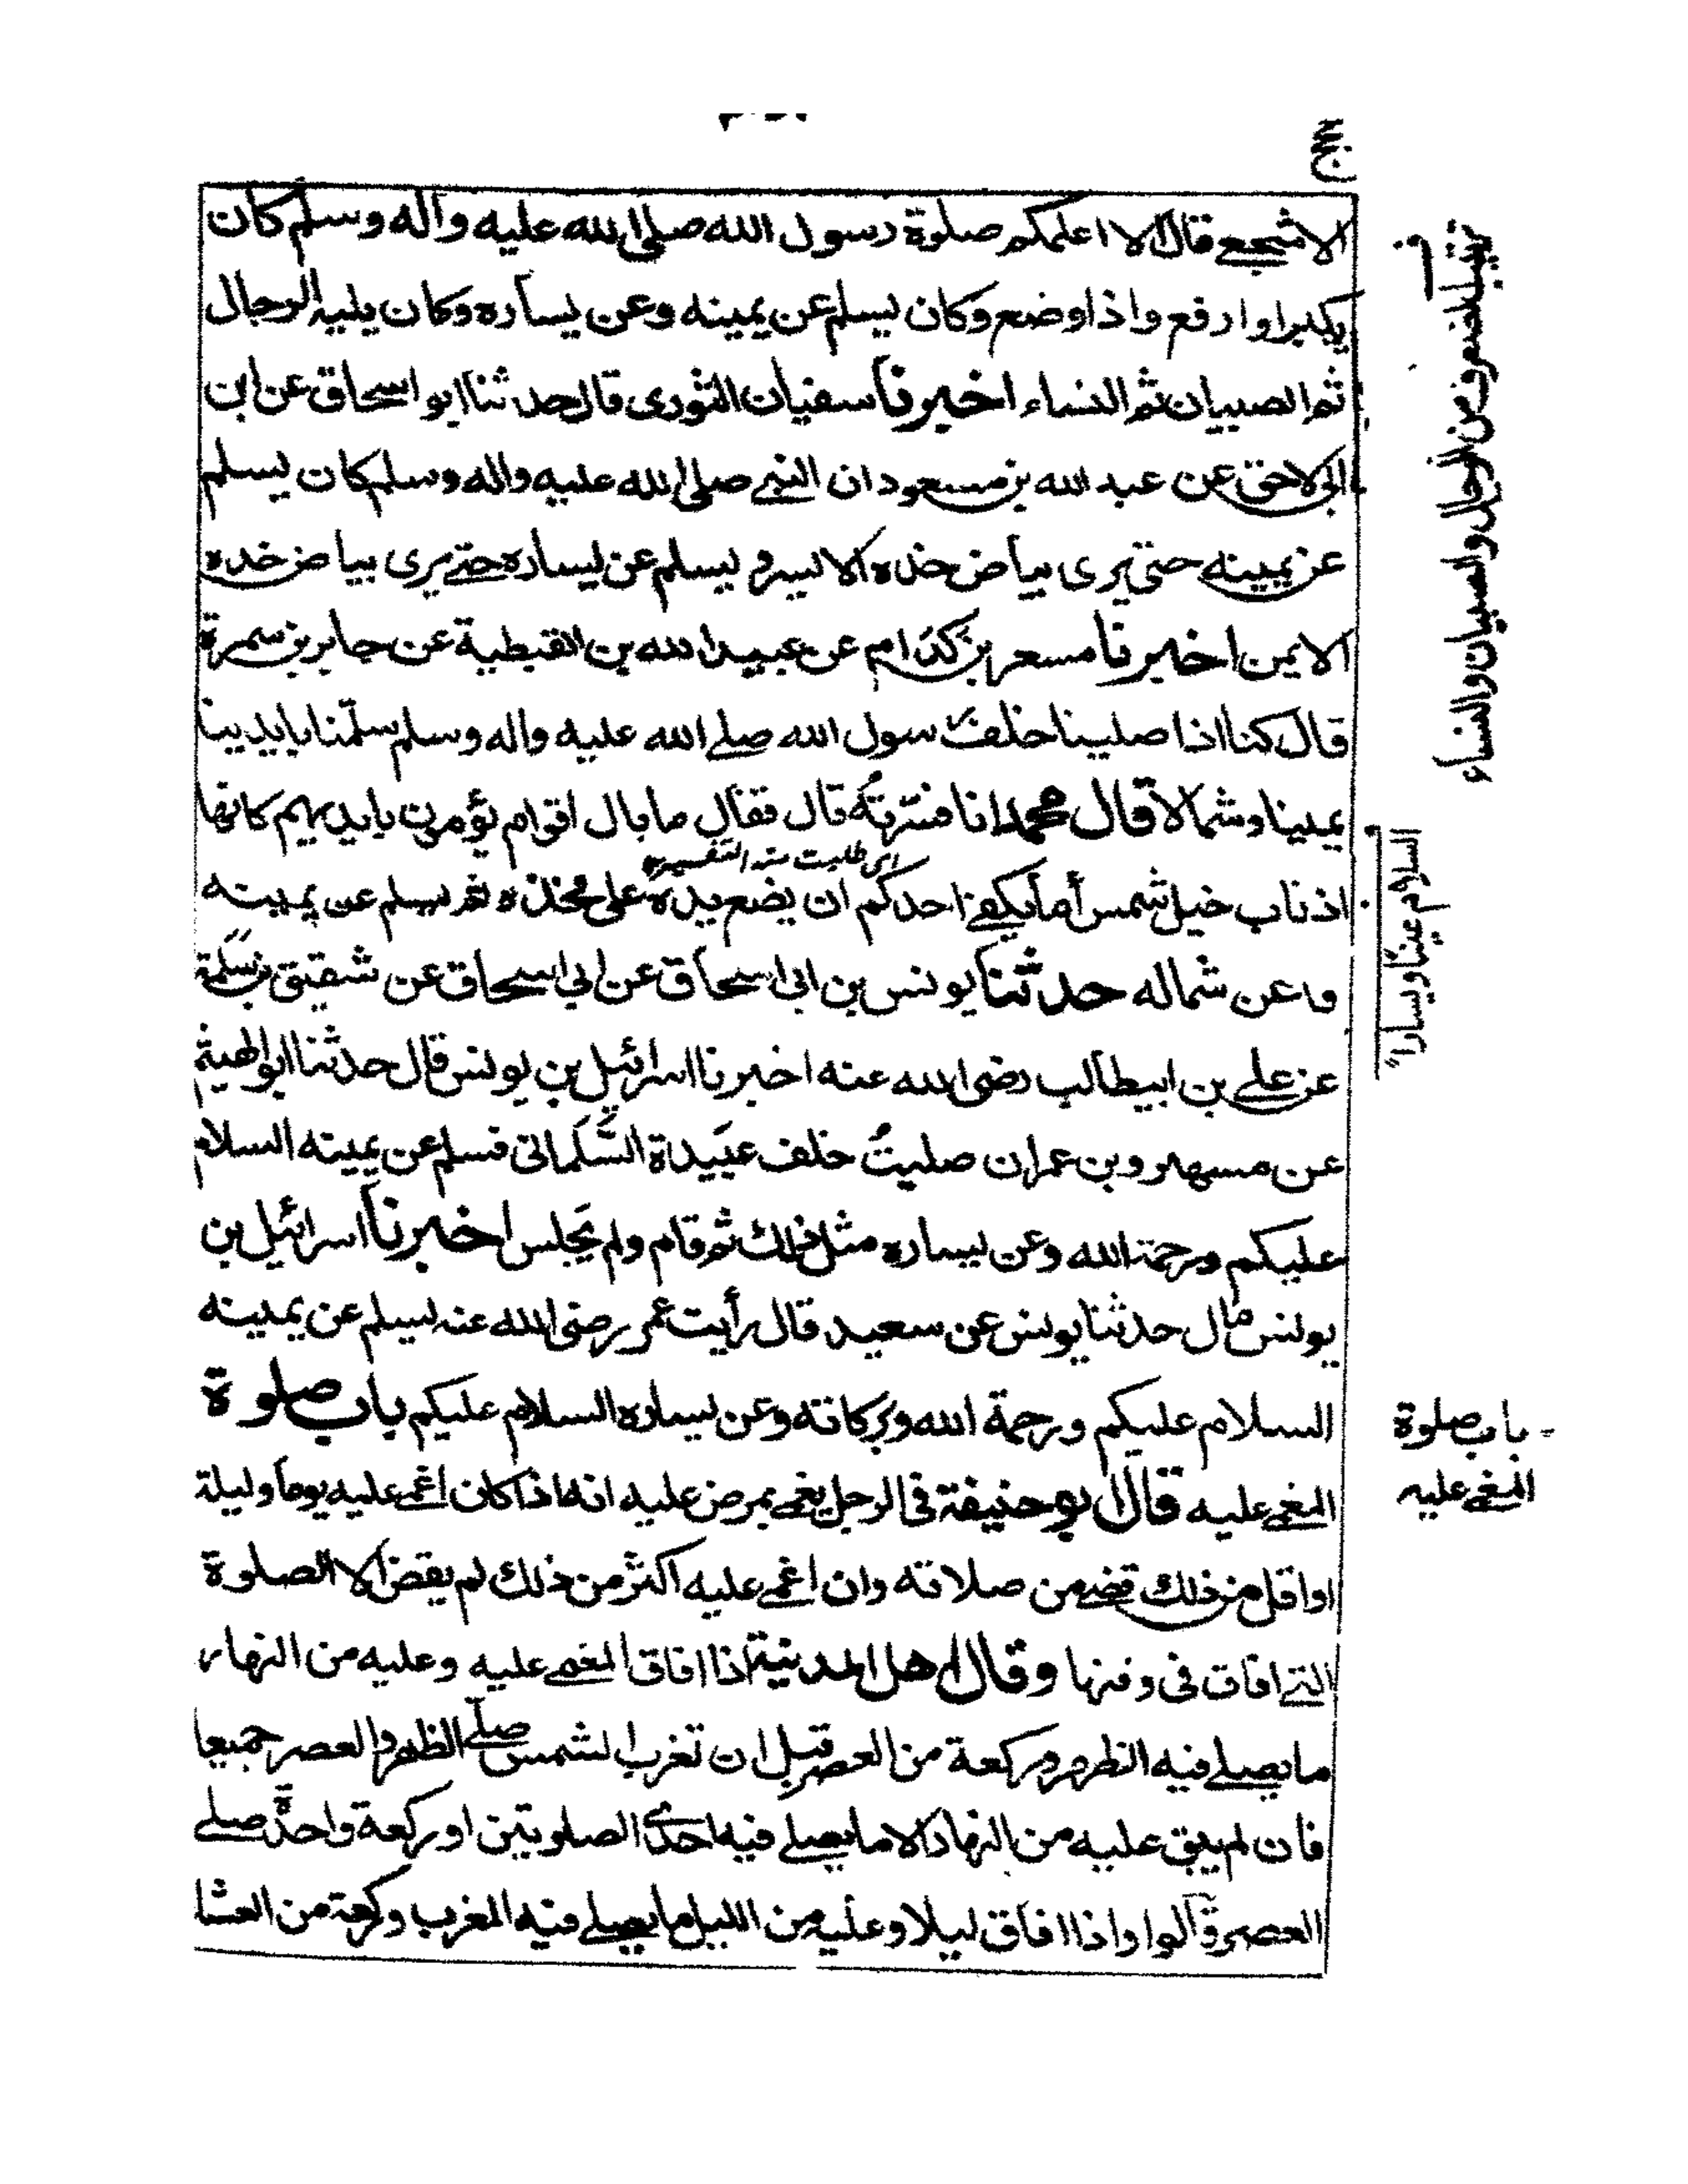 الاشجعي قال الا اعلمكم صلوة رسول الله صلى الله عليه واله وسلم كان
يكبر اوا رفع واذا وضع وكان يسلم عن يمينه وعن يساره وكان يليه الرجال
ثم الصبيان ثم النساء اخبرنا سفيان الثوري قال حدثنا ابو اسحاق عن ابن
ابي لاحق عن عبد الله بن مسعود ان النبي صلى الله عليه واله وسلم كان يسلم
عن يمينه حتى يرى بياض خده الايسر و يسلم عن يساره حتى يرى بياض خده
الايمن اخبرنا مسعر بن كدام عن عبيد الله بن القبطية عن جابر بن سمرة
قال كنا اذا صلينا خلف رسول الله صلى الله عليه واله وسلم سلّمنا بايدينا
يمينا وشمالا قال محمد انا فسّرتُه قال فقال ما بال اقوام يؤمون بايديهم كانها
اى طلبت منه التفسير
اذناب خيل شمس أما يكفى احدكم ان يضع يده على فخذه ثم يسلم عن يمينه
وعن شماله حدثنا يونس بن ابى اسحاق عن ابي اسحاق عن شقيق بن سلمة
عن على بن ابيطالب رضى الله عنه اخبرنا اسرائيل بن يونس قال حدثنا ابو الهيثم
عن بن عمران صليتُ خلف عبَيدة السَّلمانى فسلم عن يمينه السلام
عليكم ورحمة الله وعن يساره مثل ذلك ثم قام ولم يَجلس اخبرنا اسرائيل بن
يونس قال حدثنا يونس عن سعيد قال رأيت عمر رضى الله عنه يسلم عن يمينه
السلام عليكم ورحمة الله وبركاته وعن يساره السلام عليكم باب صلوة
المغمى عليه قال ابو حنيفة فى الرجل يغمى بمرض عليه انه اذا كان اغمى عليه يوما وليلة
او اقل من ذلك قضى من صلاته وان اغمى عليه اكثر من ذلك لم يقض الا الصلوة
التى افاق فى وقتها وقال اهل المدينة اذا افاق المغمى عليه وعليه من النهار
ما يصلى فيه الظهر وركعة من العصر قبل ان تغرب الشمس صلّى الظهر والعصر جميعا
فان لم يبق عليه من النهار الا ما يصلى فيه احدى الصلوتين او ركعة واحدة صلى
العصر وقالوا واذا افاق ليلا وعليه من الليل ما يصلى فيه المغرب وركعة من العشا
فى
من الرجال والصبيان والنساء
السلام يمينًا ويسارًا
باب صلوة
المغمى عليه